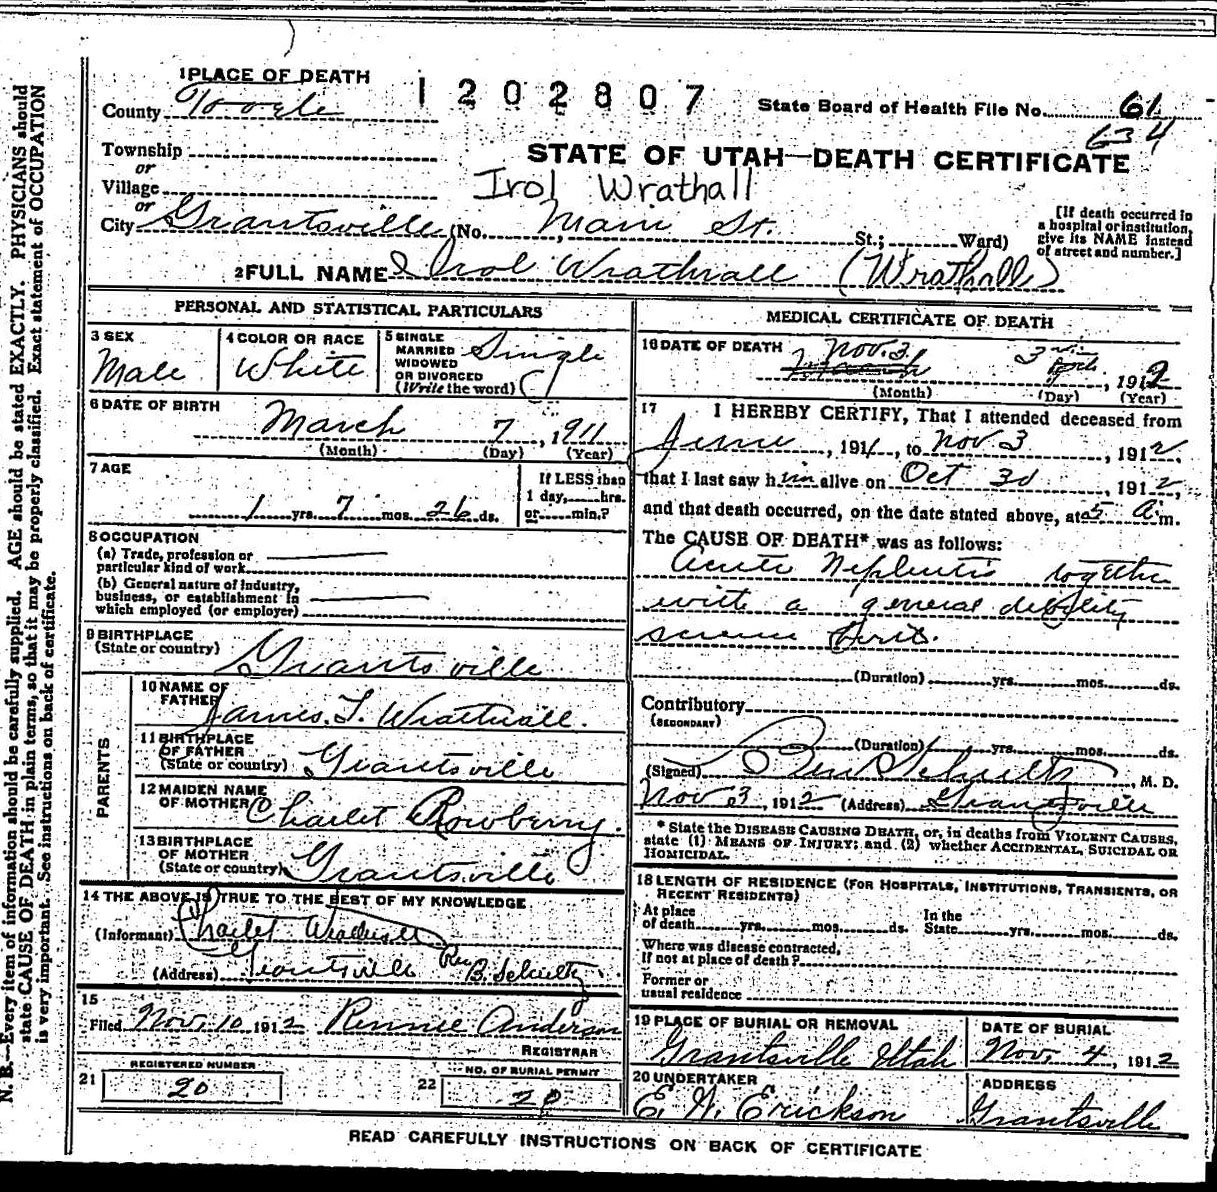 1 PLACE OF DEATH
1202807
County Tooele
State Board of Health File No. 61
634
Township
or
STATE OF UTAH—DEATH CERTIFICATE
Village
Irol Wrathall
or
City Grantsville (No. Main St. St.; Ward)
[If death occurred in a hospital or institution, give its NAME instead of street and number.]
2 FULL NAME Irol Wrathall (Wrathall)
PERSONAL AND STATISTICAL PARTICULARS
3 SEX
Male
4 COLOR OR RACE
White
5 SINGLE
MARRIED
WIDOWED
OR DIVORCED
(Write the word)
Single
6 DATE OF BIRTH
March 7, 1911
(Month) (Day) (Year)
7 AGE
1 yrs. 7 mos. 26 ds.
If LESS than
1 day, hrs.
or min.?
8 OCCUPATION
(a) Trade, profession or
particular kind of work
(b) General nature of industry,
business, or establishment in
which employed (or employer)
9 BIRTHPLACE
(State or country)
Grantsville
PARENTS
10 NAME OF
FATHER
James. L. Wrathall.
11 BIRTHPLACE
OF FATHER
(State or country)
Grantsville
12 MAIDEN NAME
OF MOTHER
Charlet Rowberry.
13 BIRTHPLACE
OF MOTHER
(State or country)
Grantsville
14 THE ABOVE IS TRUE TO THE BEST OF MY KNOWLEDGE
(Informant) Charlet Wrathall
(Address) Grantsville
B. Schultz
15
Filed Nov. 10 1912 Rennie Anderson
REGISTRAR
21
REGISTERED NUMBER
20
22
NO. OF BURIAL PERMIT
20
MEDICAL CERTIFICATE OF DEATH
16 DATE OF DEATH
Nov. 3
3, 1912
(Month) (Day) (Year)
17 I HEREBY CERTIFY, That I attended deceased from
June, 1911, to Nov 3, 1912,
that I last saw him alive on Oct 3d, 1912,
and that death occurred, on the date stated above, at 5 A. m.
The CAUSE OF DEATH* was as follows:
Acute Nephritis together
with a general debility
science birth.
(Duration) yrs. mos. ds.
Contributory
(SECONDARY)
(Duration) yrs. mos. ds.
(Signed) Ben Schultz, M. D.
Nov 3, 1912 (Address) Grantsville
* State the DISEASE CAUSING DEATH, or, in deaths from VIOLENT CAUSES,
state (1) MEANS OF INJURY; and (2) whether ACCIDENTAL, SUICIDAL OR
HOMICIDAL.
18 LENGTH OF RESIDENCE (FOR HOSPITALS, INSTITUTIONS, TRANSIENTS, OR
RECENT RESIDENTS)
At place
of death yrs. mos. ds.
In the
State yrs. mos. ds.
Where was disease contracted,
If not at place of death?
Former or
usual residence
19 PLACE OF BURIAL OR REMOVAL
Grantsville Utah
DATE OF BURIAL
Nov. 4, 1912
20 UNDERTAKER
E. W. Erickson
ADDRESS
Grantsville
READ CAREFULLY INSTRUCTIONS ON BACK OF CERTIFICATE
N. B.—Every item of information should be carefully supplied. AGE should be stated EXACTLY. PHYSICIANS should
state CAUSE OF DEATH in plain terms, so that it may be properly classified. Exact statement of OCCUPATION
is very important. See instructions on back of certificate.